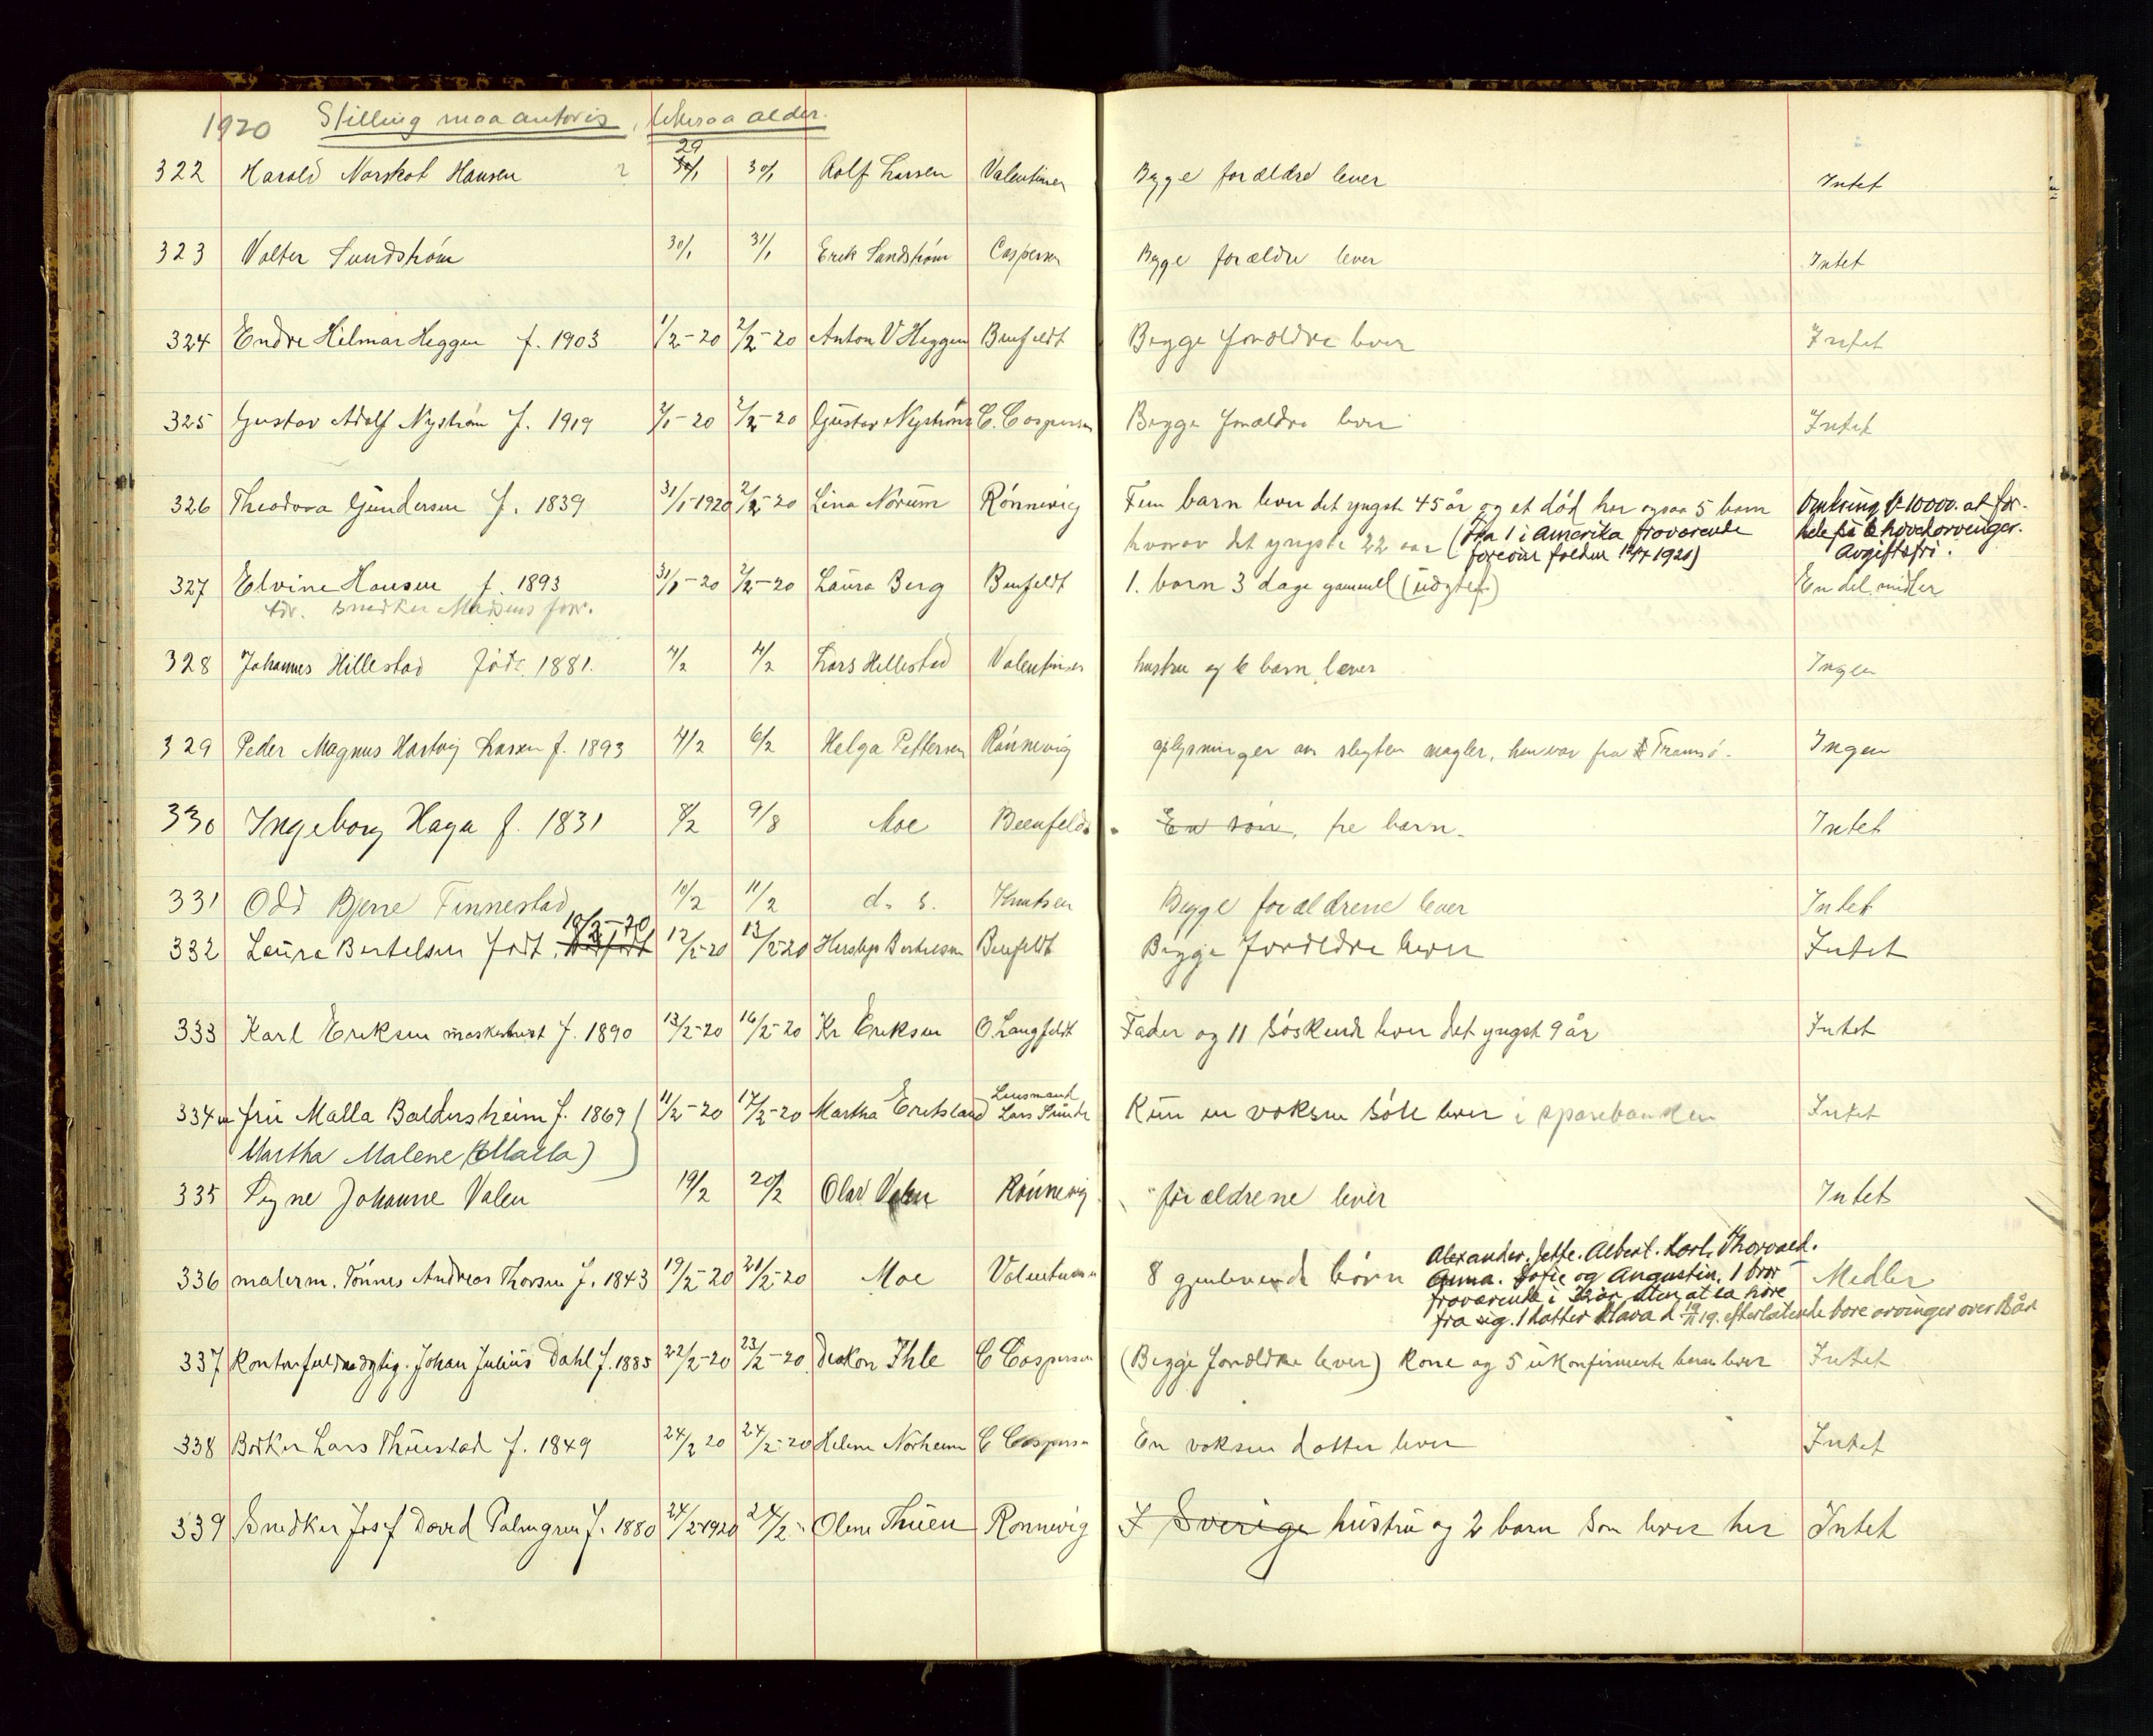 1920 Stilling maa antoris, likesaa alder.
322 Harald Norskot Hansen ? 29 30/1 30/1 Rolf Larsen Valentiner Begge forældre lever Intet
323 Valter Sundström 30/1 31/1 Erik Sundström Caspersen Begge forældre lever Intet
324 Endre Hilmar Heggen f. 1903 1/2-20 2/2-20 Anton V Heggen Benfeldt Begge forældre lever Intet
325 Gustav Adolf Nyström f. 1919 2/2-20 Gustav Nyström C. Caspersen Begge forældre lever Intet
326 Theodora Gundersen f. 1839 31/1-1920 2/2-20 Lina Norum Rönnevig Fem barn lever det yngste 45 år og et död har ogsaa 5 barn Omkring kr 10000. at for-
hvorav det yngste 22 aar (Fra 1 i Amerika fraværende dele på 6 hovedarvinger.
1920) Avgiftsfri.
327 Elvine Hansen f. 1893 31/1-20 2/2-20 Laura Berg Benfeldt 1. barn 3 dage gammel (udgifter) En del midler
adr. Snedker Madsens forr.
328 Johannes Hillestad födt. 1881. 4/2 4/2 Lars Hillestad Valentiner hustru og 6 barn lever Ingen
329 Peder Magnus Hartvig Larsen f. 1893 4/2 6/2 Helga Pettersen Rönnevig oplysninger om slegten mangler, han var fra Tromsö. Ingen
330 Ingeborg Haga f. 1831 8/2 9/8 Moe Beenfeldt En sön, fre barn. Intet
331 Odd Bjerre Finnestad 10/2 11/2 d. s. Knutsen Begge forældrene lever Intet
10/2-20
332 Laura Bertelsen födt. 12/2-20 13/2-20 Herslep Bertelsen Benfeldt Begge forældre lever Intet
333 Karl Eriksen maskinist f. 1890 13/2-20 16/2-20 Kr Eriksen O. Langfeldt Fader og 11 söskende lever det yngst 9 år Intet
Lensmand
334 fru Malla Baldersheim f. 1869 11/2-20 17/2-20 Martha Eriksland Lars Sunde Kun en voksen lever i sparebanken Intet
Martha Malene (Malla)
335 Signe Johanne Valen 19/2 20/2 Olav Valen Rönnevig forældrene lever Intet
Alexander. Jette. Albert. Karl. Thorvald.
336 malerm. Tönnes Andreas Thorsen f. 1843 19/2-20 21/2-20 Moe Valentiner 8 gjenlevende börn Anna. Sofie og Augustin. 1 bror Medler
fraværende i 32 år uten at la höre
fra sig. 1 datter Klara d. 19. efterlatende bare arvinger over 18 år
337 Kontorfuldmægtig. Johan Julius Dahl f. 1885 22/2-20 23/2-20 Diakon Ihle C Caspersen (Begge forældre lever) Kone og 5 ukonfirmerte barn lever Intet
338 Bödker Lars Thuestad f. 1849 24/2 20 24/2-20 Helene Norheim C Caspersen En voksen datter lever Intet
339 Snedker Josef David Palmgren f. 1880 24/2-1920 24/2- Olene Thuen Ronnevig I Sverige hustru og 2 barn som lever her Intet